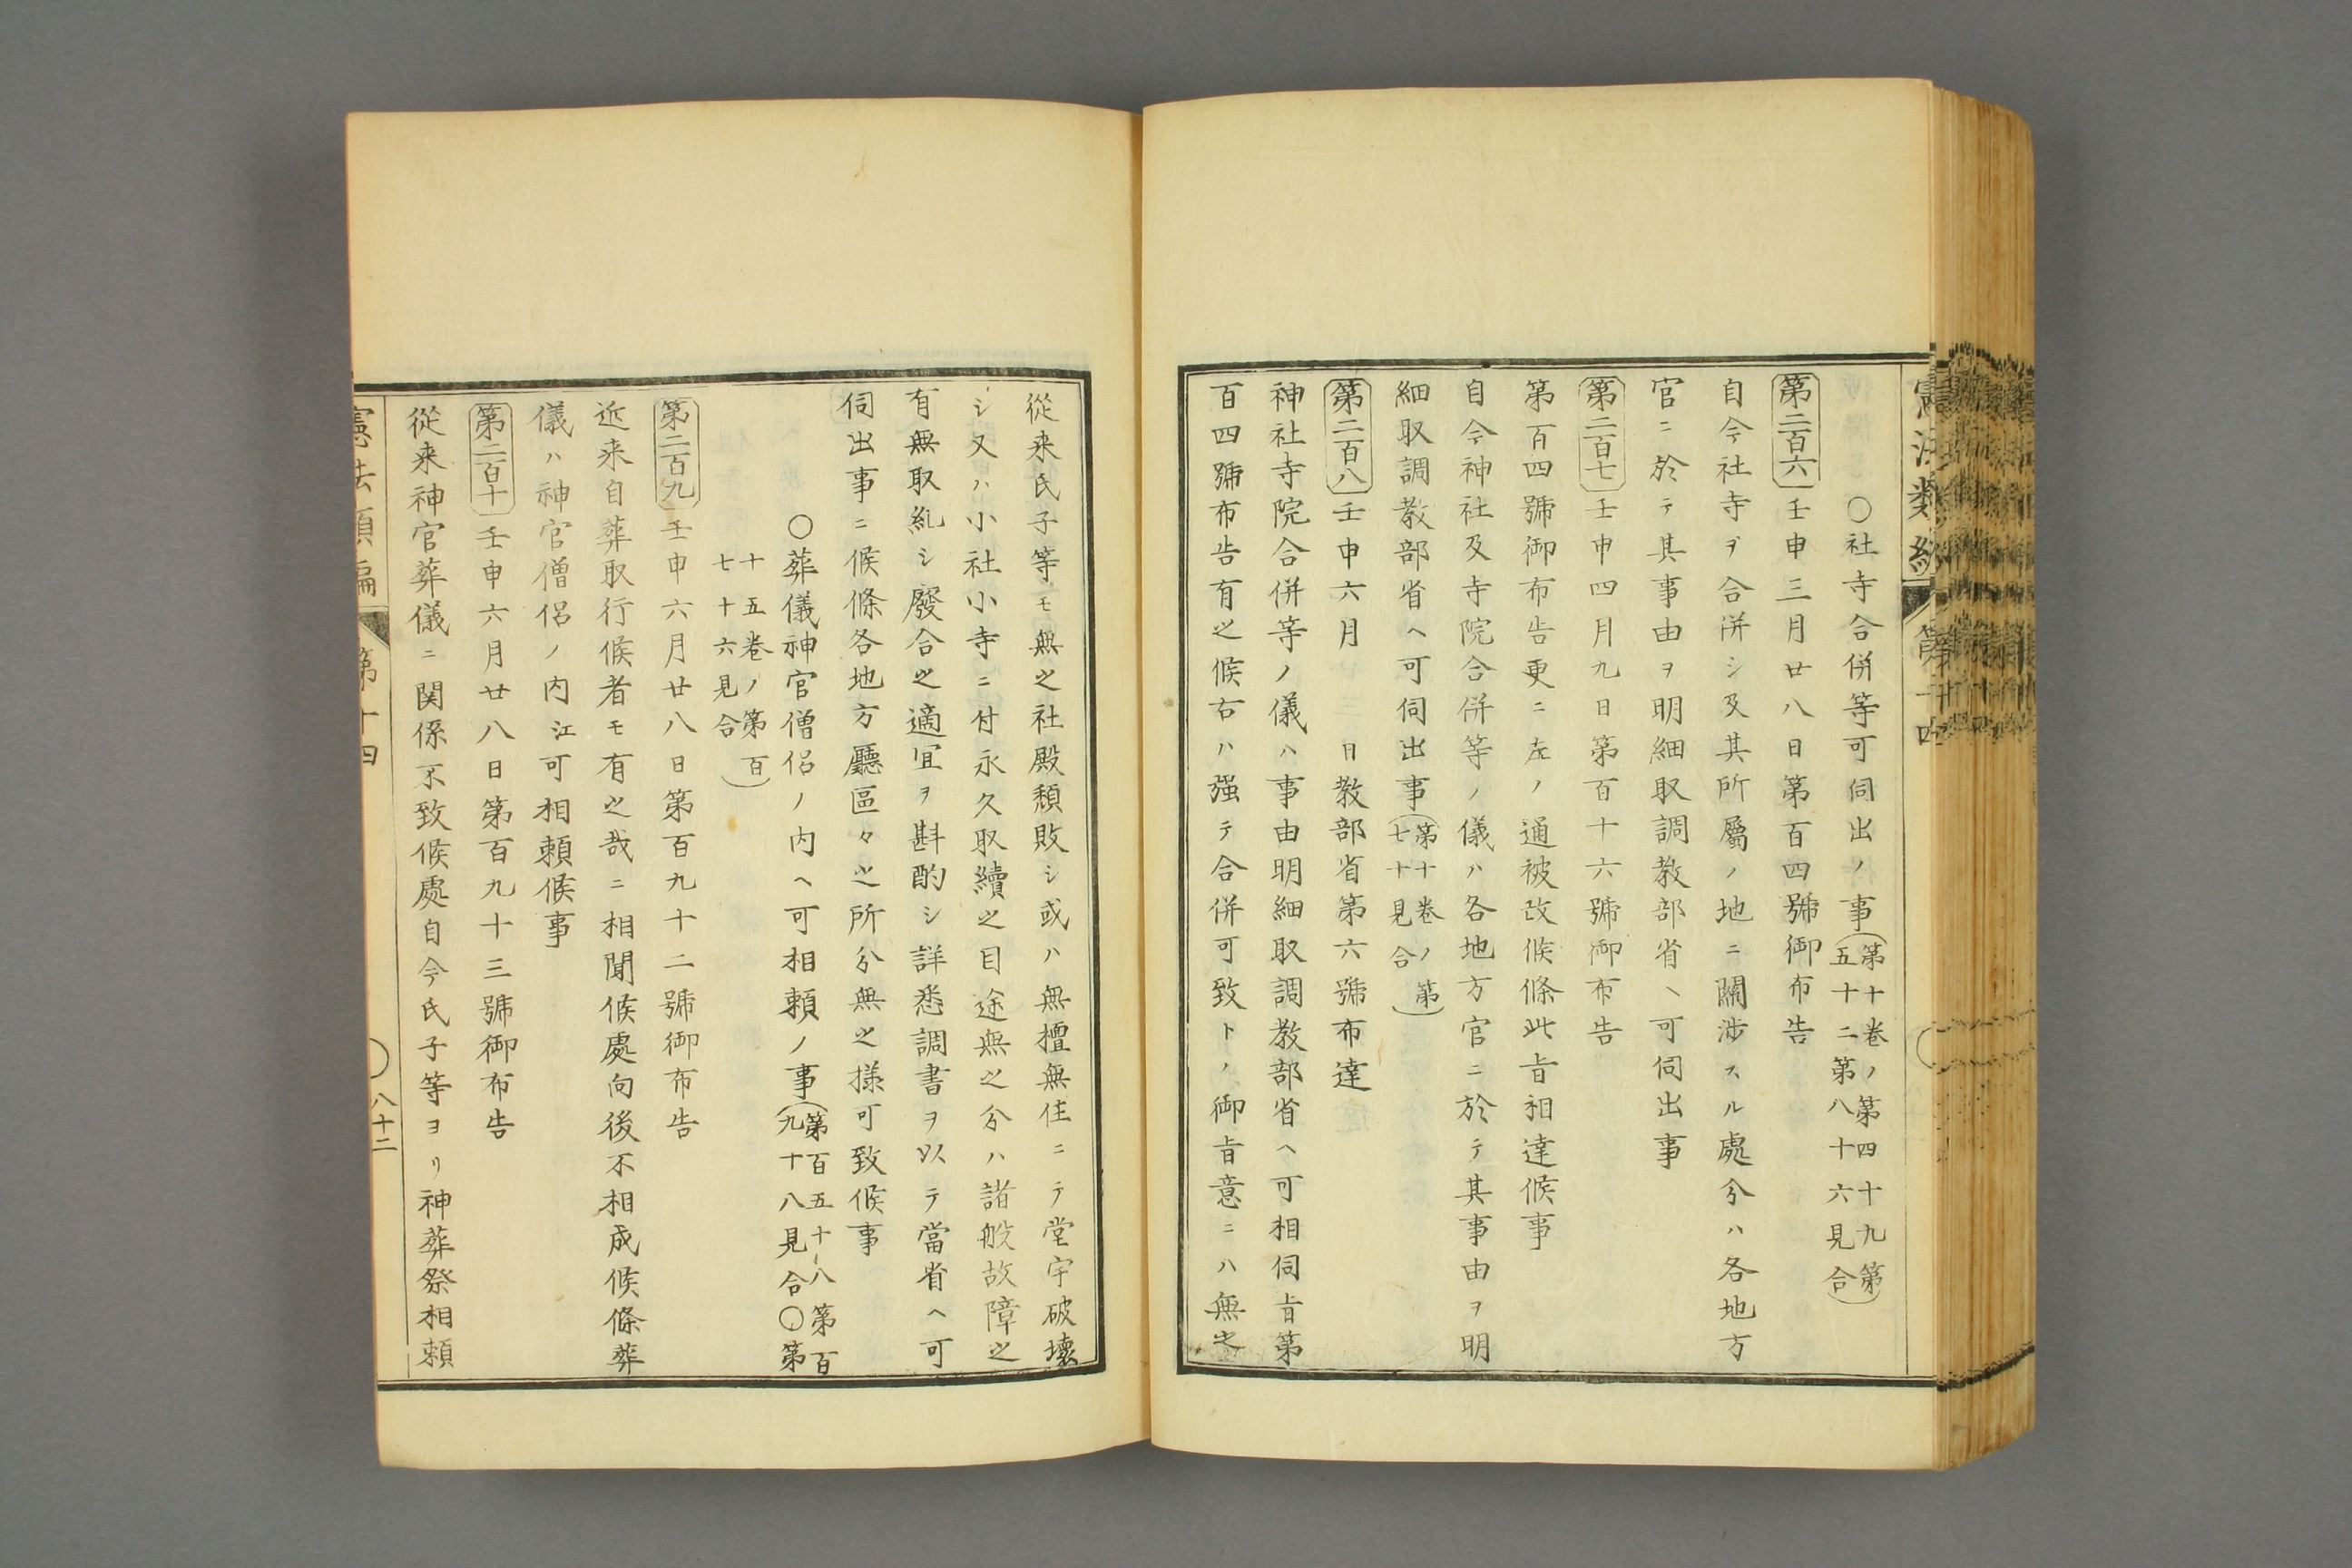 ○社寺合併等可伺出ノ事(第十卷ノ第四十九第五十二第八十六見合)
第二百六 壬申三月廿八日第百四號御布告
自今社寺ヲ合併シ及其所屬ノ地ニ關涉スル處分ハ各地方
官ニ於テ其事由ヲ明細取調教部省ヘ可伺出事
第二百七 壬申四月九日第百十六號御布告
第百四號御布告更ニ左ノ通被改候條此旨相達候事
自今神社及寺院合併等ノ儀ハ各地方官ニ於テ其事由ヲ明
細取調教部省ヘ可伺出事(第十卷ノ第七十見合)
第二百八 壬申六月 日教部省第六號布達
神社寺院合併等ノ儀ハ事由明細取調教部省ヘ可相伺旨第
百四號布告有之候右ハ强テ合併可致トノ御旨意ニハ無之
從来氏子等モ無之社殿頽敗シ或ハ無檀無住ニテ堂宇破壞
シ又ハ小社小寺ニ付永久取續之目途無之分ハ諸般故障之
有無取糺シ廢合之適宜ヲ斟酌シ詳悉調書ヲ以テ當省ヘ可
伺出事ニ候條各地方廳區々之所分無之様可致候事
○葬儀神官僧侶ノ内ヘ可相頼ノ事(第百五十八第百九十八見合○第
十五卷ノ第百七十六見合)
第二百九 壬申六月廿八日第百九十二號御布告
近来自葬取行候者モ有之哉ニ相聞候處向後不相成候條葬
儀ハ神官僧侶ノ内江可相頼候事
第二百十 壬申六月廿八日第百九十三號御布告
從来神官葬儀ニ関係不致候處自今氏子等ヨリ神葬祭相頼
憲法類編 第十四
八十二